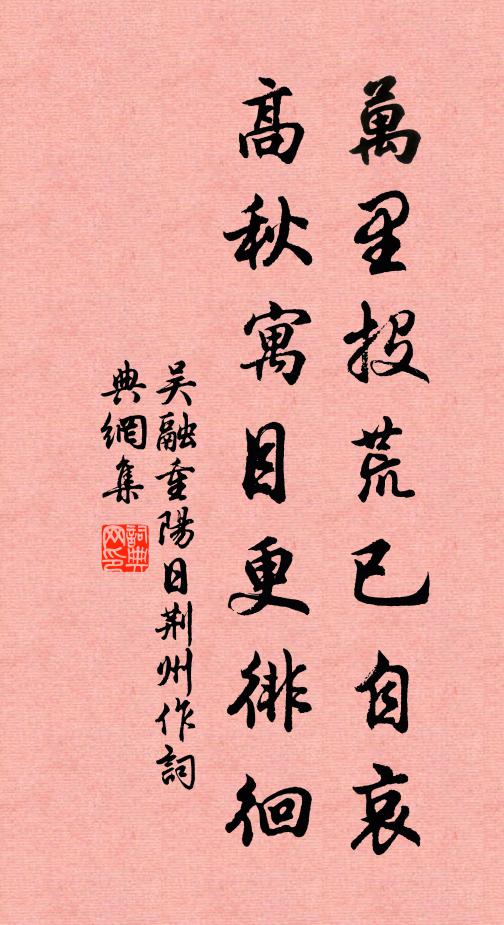 萬里投荒已自哀
高秋寓目更徘徊
吳融重陽日荆州作詞
典網集
詞典
网印